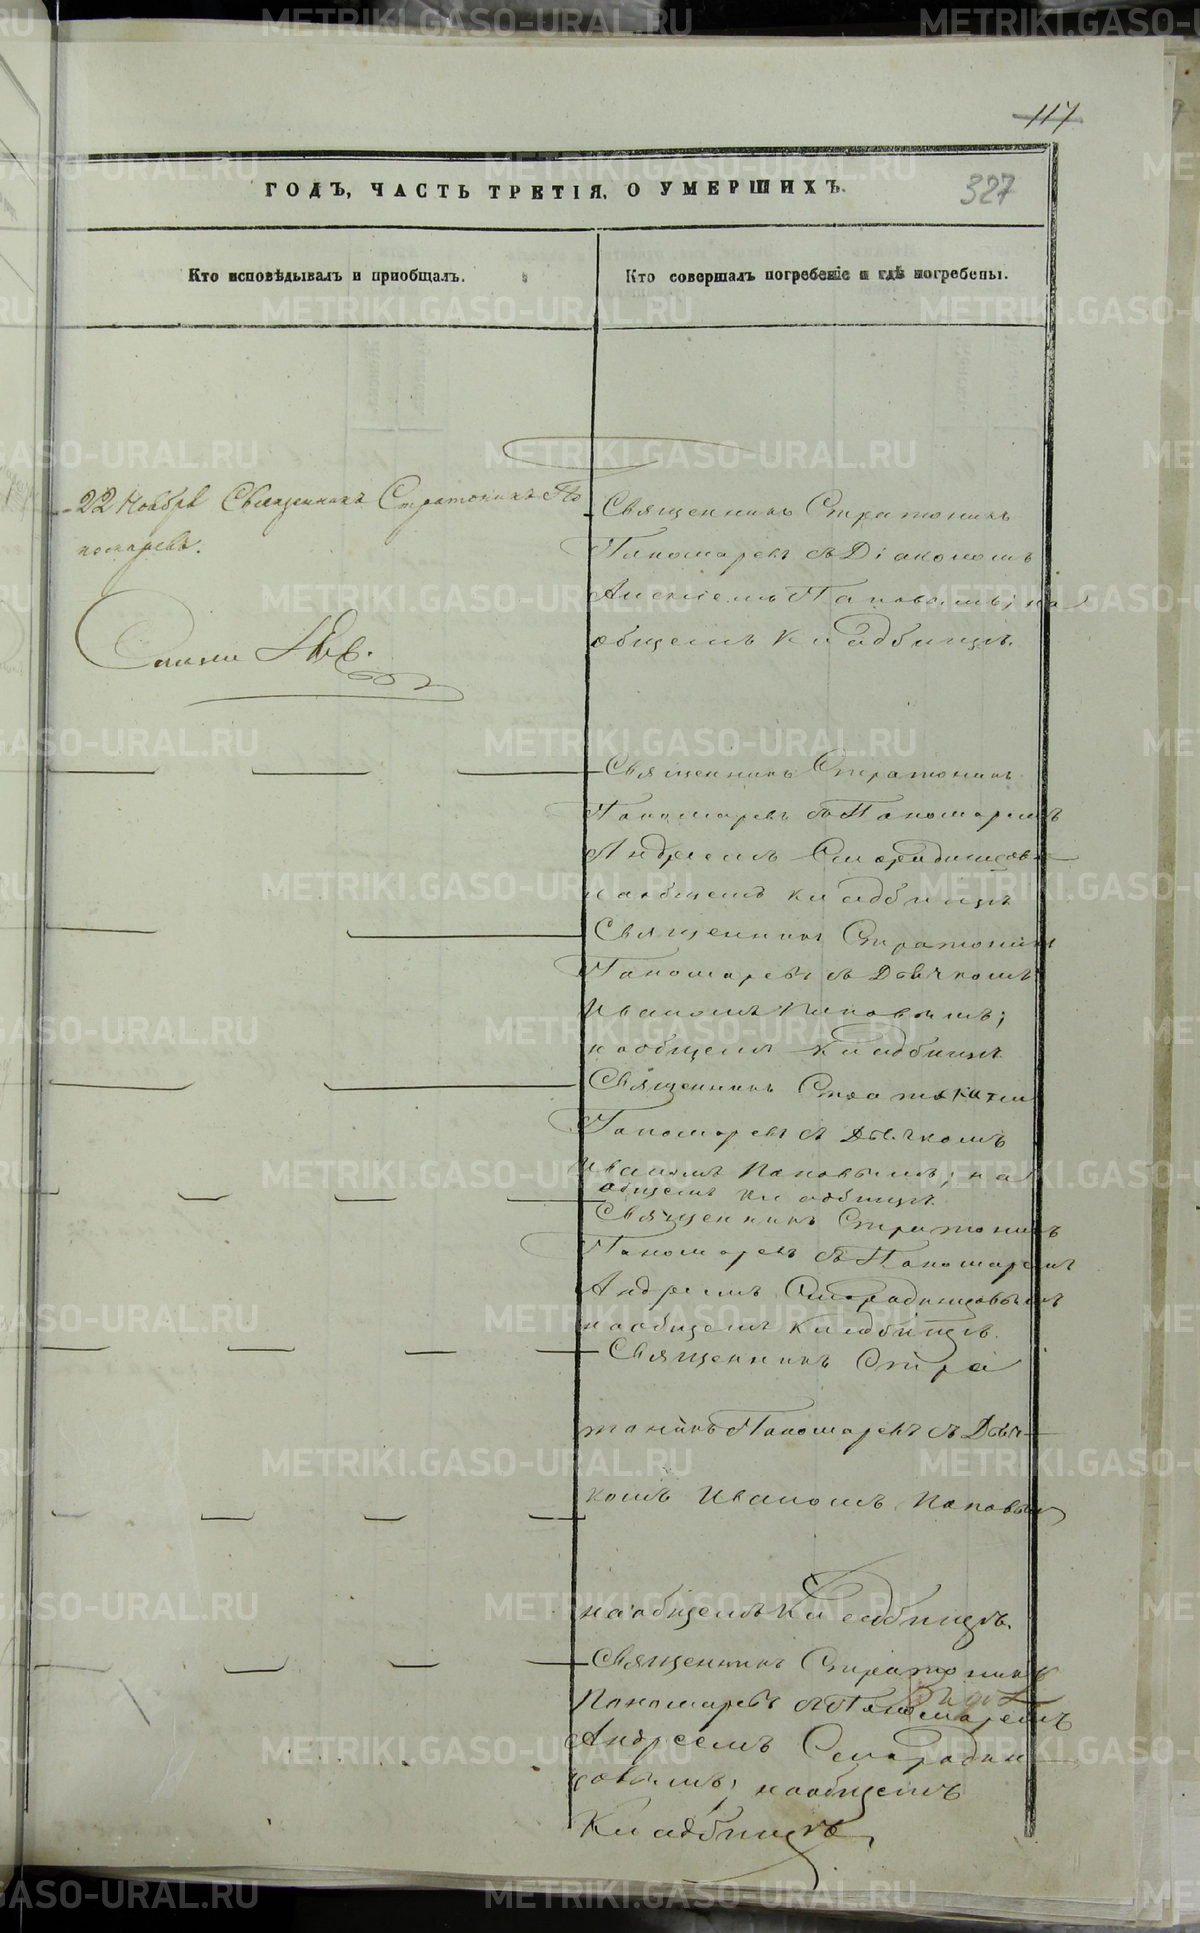 117
ГОДЪ, ЧАСТЬ ТРЕТІЯ, О УМЕРШИХЪ.
327
Кто исповѣдывалъ и приобщалъ.
Кто совершалъ погребеніе и гдѣ погребены.
22 Ноября Священникъ Стратоникъ По
номаревъ.
Священникъ Стратоникъ
Пономаревъ съ Діакономъ
Поповымъ; на
общемъ кладбищѣ.
Священникъ Стратоникъ
Пономаревъ съ Пономаремъ
Андреемъ
на общемъ кладбищѣ
Священникъ Стратоникъ
Пономаревъ съ Дьячкомъ
Иваномъ Поповымъ;
на общемъ кладбищѣ
Священникъ Стратоникъ
Пономаревъ съ Дьячкомъ
Иваномъ Поповымъ; на
общемъ кладбищѣ
Священникъ Стратоникъ
Пономаревъ съ Пономаремъ
Андреемъ Смородинцовымъ
на общемъ кладбищѣ.
Священникъ Стра
тоникъ Пономаревъ съ Дьяч
комъ Иваномъ Поповым
на общемъ Кладбищѣ.
Священникъ Стратоникъ
Пономаревъ съ Пономаремъ
Андреемъ Смородин
цовымъ; на общемъ
Кладбищѣ
METRIKI.GASO-URAL.RU